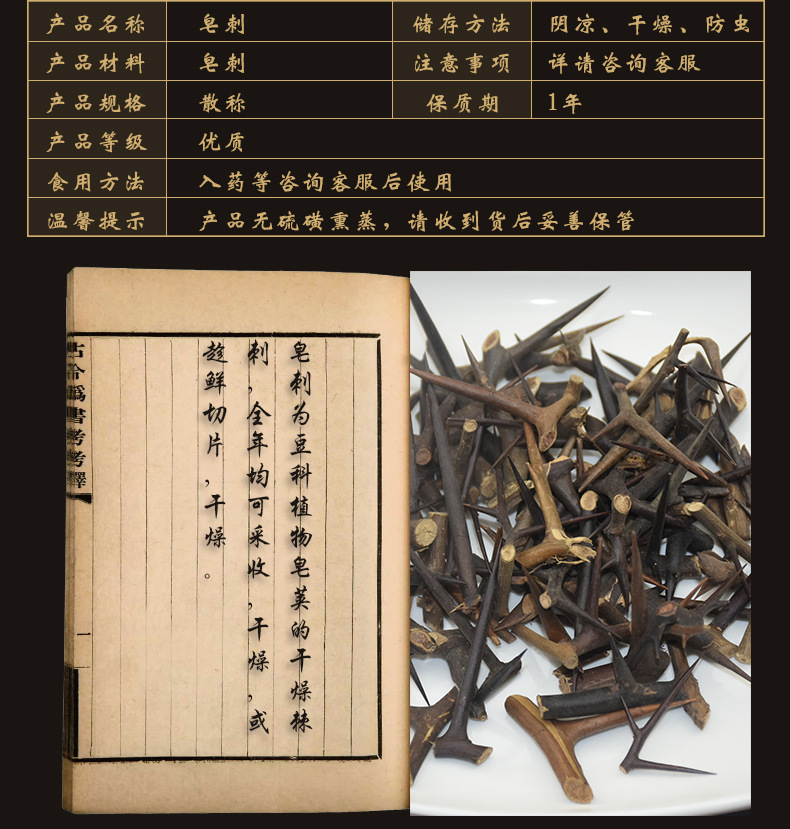 产品名称 皂刺 储存方法 阴凉、干燥、防虫
产品材料 皂刺 注意事项 详请咨询客服
产品规格 散称 保质期 1年
产品等级 优质
食用方法 入药等咨询客服后使用
温馨提示 产品无硫磺熏蒸，请收到货后妥善保管
皂刺为豆科植物皂荚的干燥棘
刺，全年均可采收，干燥，或
趁鲜切片，干燥。
古今爲書考考釋
一